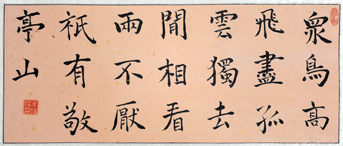 眾鳥高
飛盡孤
雲獨去
閒相看
兩不厭
祇有敬
亭山